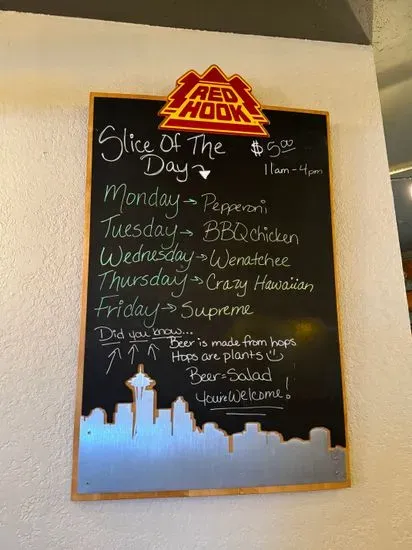 RED
HOOK
Slice Of The
Day
$5.00
11am - 4pm
Monday → Pepperoni
Tuesday → BBQ Chicken
Wednesday → Wenatchee
Thursday → Crazy Hawaiian
Friday → Supreme
Did you know...
Beer is made from hops
Hops are plants
Beer = Salad
You're Welcome!